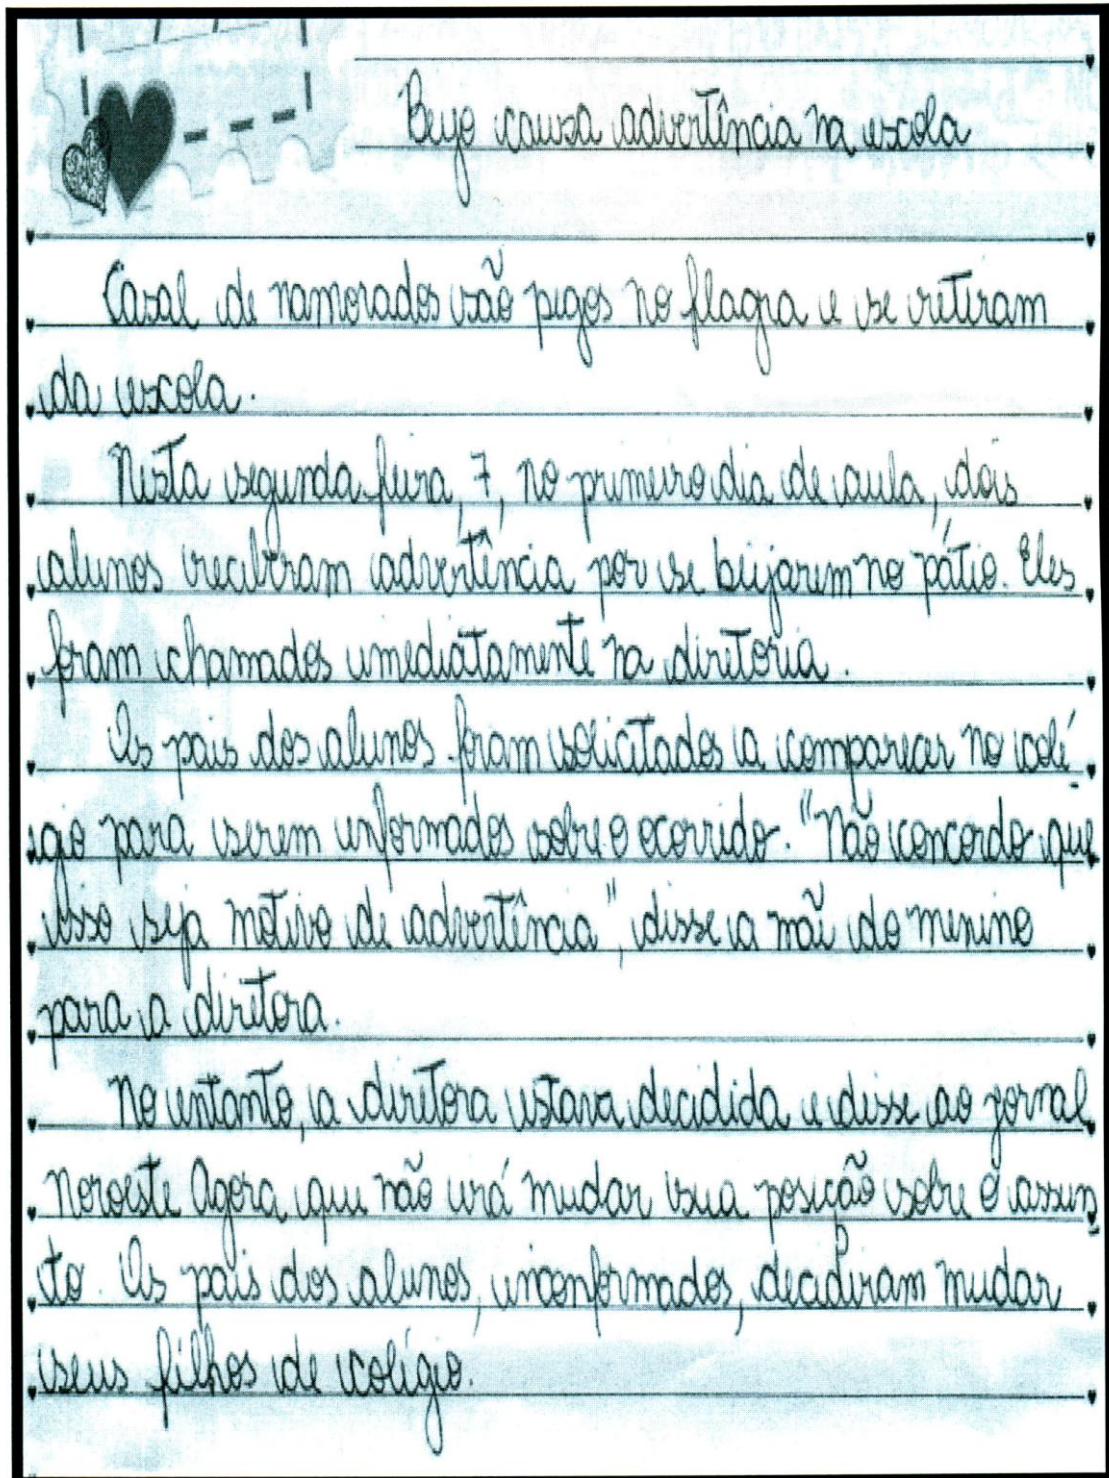 Beijo causa advertência na escola
Casal de namorados são pegos no flagra e se retiram
da escola.
Nesta segunda feira, 7, no primeiro dia de aula, dois
alunos receberam advertência por se beijarem no pátio. Eles
foram chamados imediatamente na diretoria.
Os pais dos alunos foram solicitados a comparecer no colé
gio para serem informados sobre o ocorrido. "Não concordo que
isso seja motivo de advertência", disse a mãe do menino
para a diretora.
No entanto, a diretora estava decidida e disse ao jornal
Noroeste Agora, que não irá mudar sua posição sobre o assun
to. Os pais dos alunos, inconformados, decidiram mudar
seus filhos de colégio.